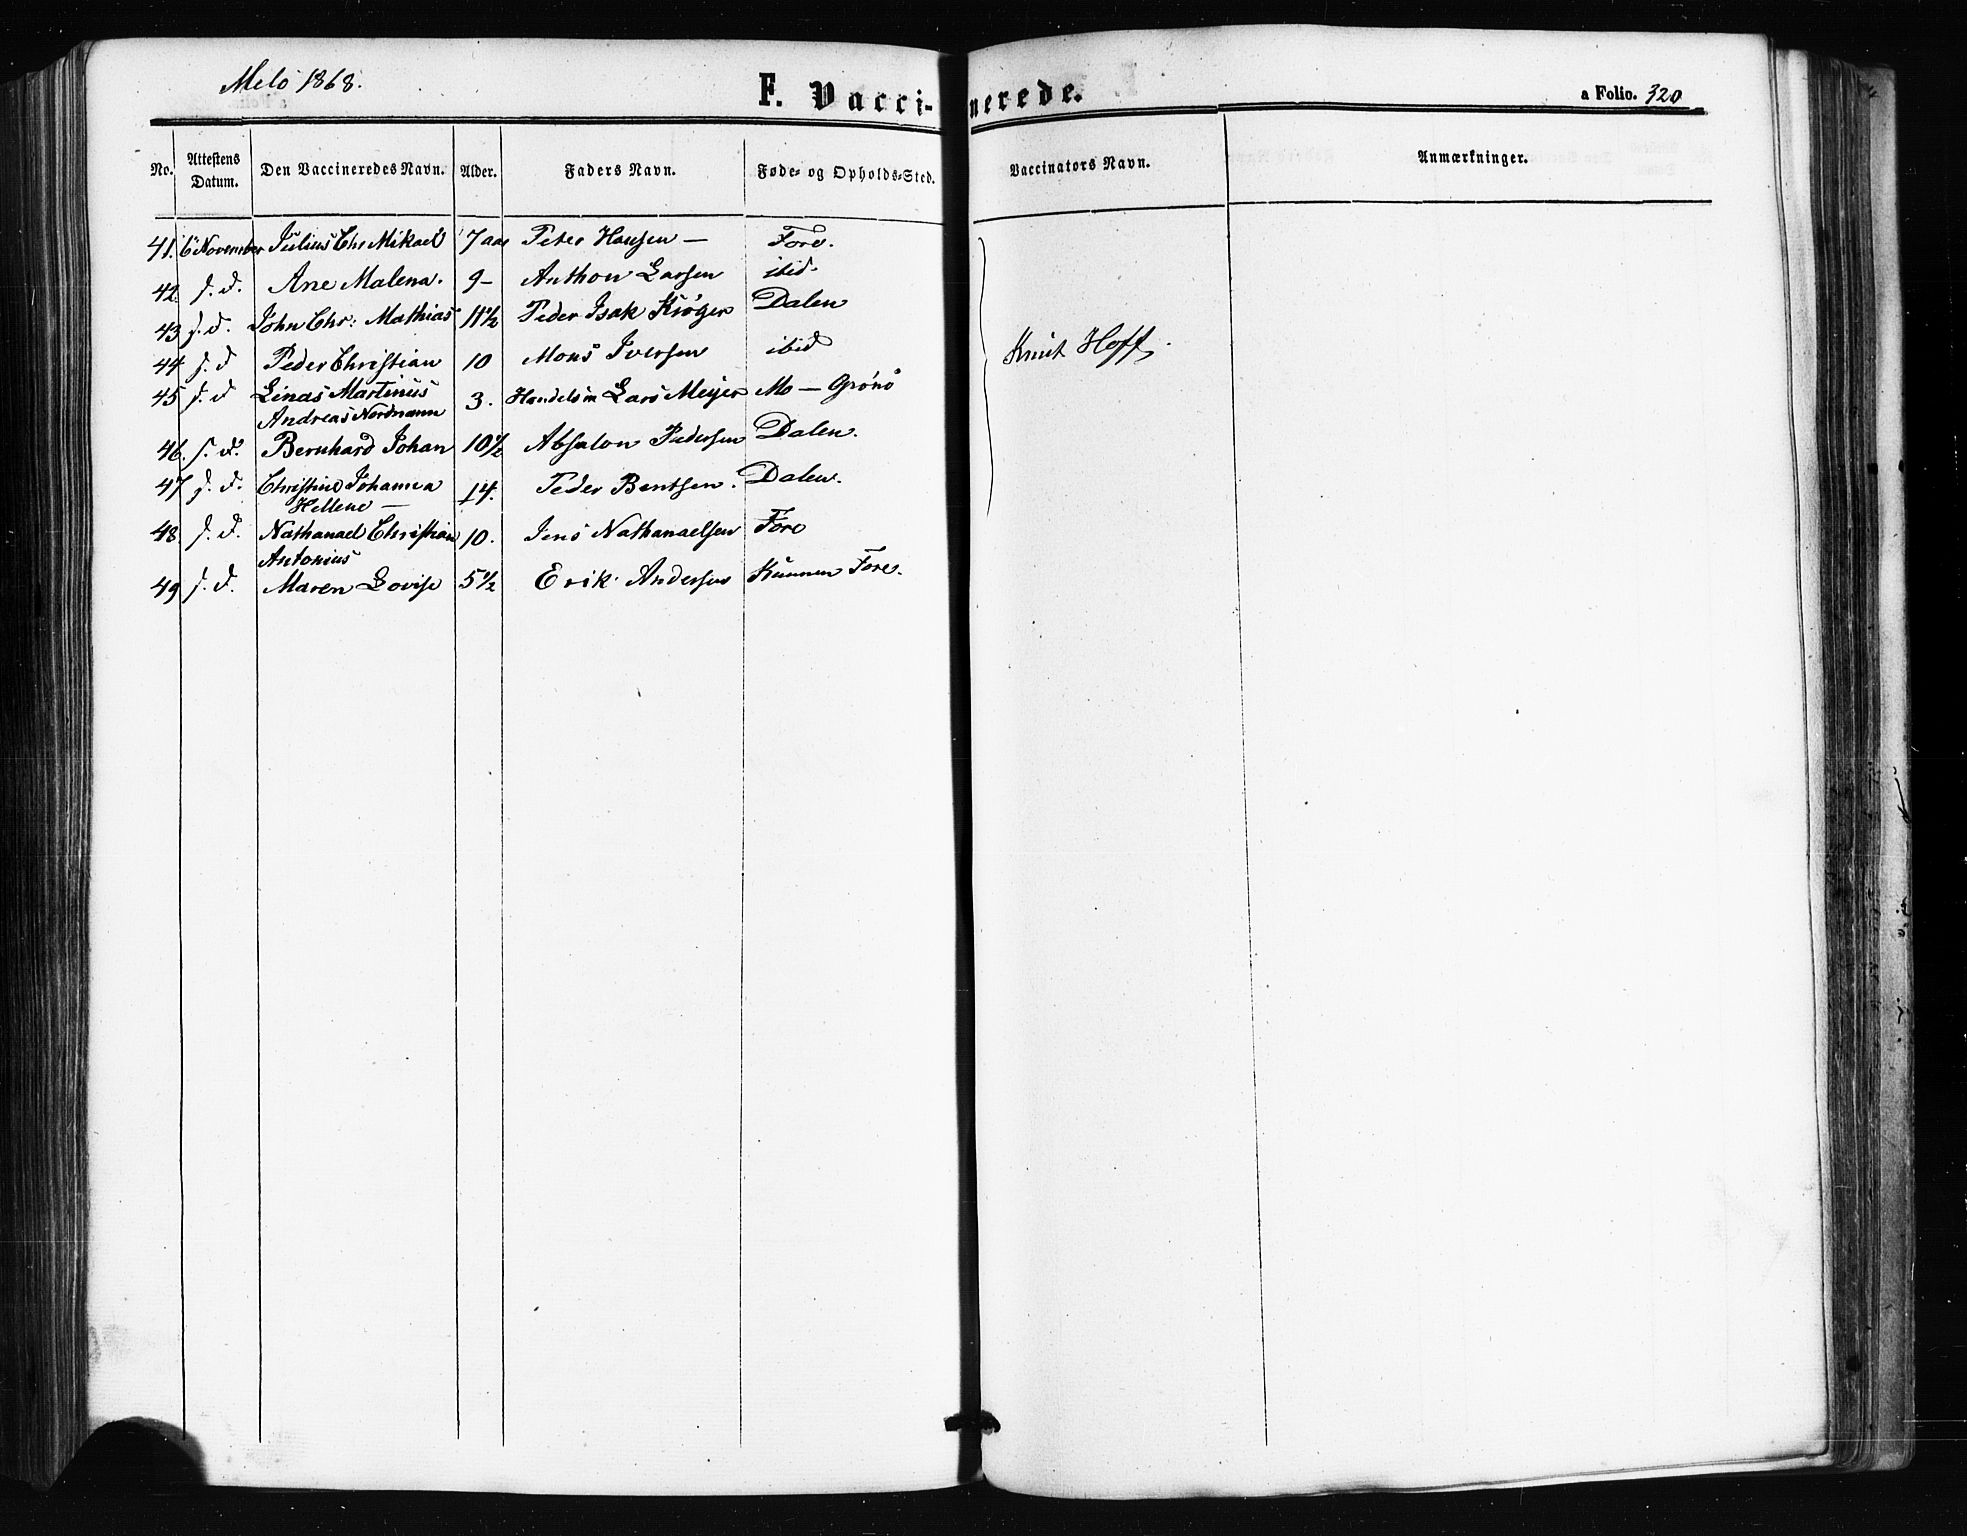 Melo 1868.
F. Vacci-nerede.
a Folio. 320
No. Attestens Datum. Den Vaccineredes Navn. Alder. Faders Navn. Føde- og Opholds-Sted. Vaccinators Navn. Anmærkninger.
41. 6 November Julius Chr Mikael 7 aar Peter Hansen — Fore.
42. s. d. Ane Malena. 9 – Anthon Larsen ibid.
43 s. d. John Chr: Mathias 11½ Peder Isak Krøger Dalen
44 s. d Peder Christian 10 Mons Iversen ibid
Knut Hoff.
45 s. d Linas Martinus 3. Handelsm Lars Meyer Mo — Grønø
Andreas Nordmann
46. s. d. Bernhard Johan 10½ Absalon Pedersen Dalen.
47 s. d. Christine Johanna 14. Peder Bentsen. Dalen.
Hellene —
48. s. d. Nathanael Christian 10. Jens Nathanaelsen Fore
Antonius
49 s. d. Maren Lovise 5½ Erik Andersen Kunnen Fore.